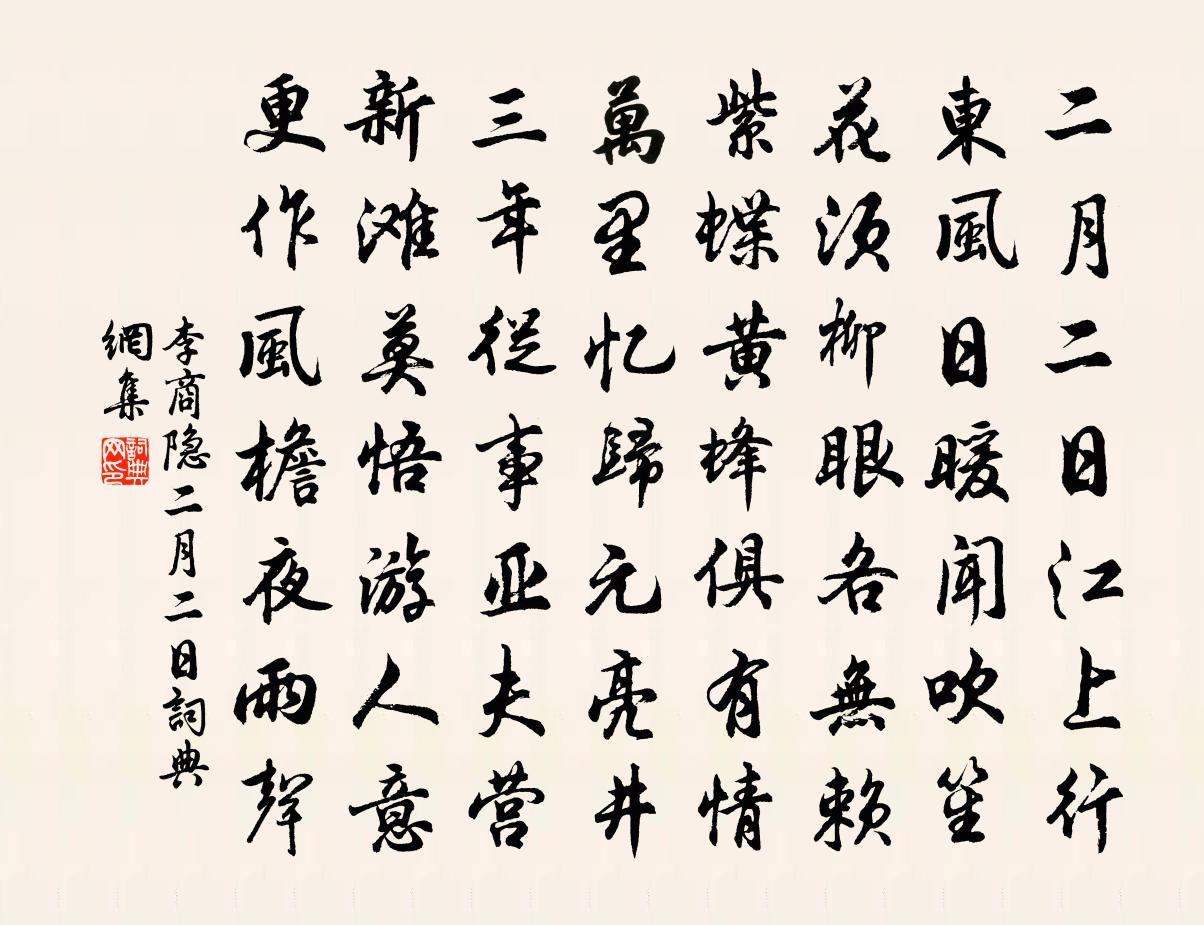 二月二日江上行
東風日暖聞吹笙
花须柳眼各無賴
紫蝶黄蜂俱有情
萬里忆歸元亮井
三年從事亚夫营
新滩莫悟游人意
更作風檐夜雨聲
李商隐二月二日詞典
網集
詞典
网印